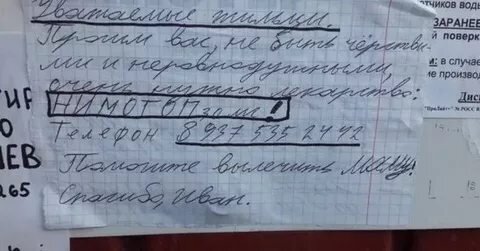 Уважаемые жильцы.
Просим вас, не быть чёрствы-
ми и неравнодушными,
очень нужно лекарство:
НИМОТОП 30 мг!
Телефон 8 937 535 24 92
Помогите вылечить маму.
Спасибо, Иван.
ТИР
О
ЕВ
265
тчиков воды
ЗАРАНЕЕ
й поверки
и: в случае
ие производ
Дисп
"ПроЛайт+" № РОСС R